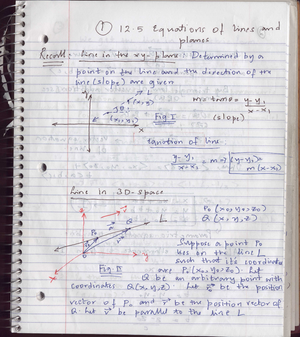 ① 12.5 Equations of lines and
planes
Recall:- Line in the xy-plane: Determined by a
point on the line and the direction of the
line (slope) are given
y
L
(x, y)
θ
(x₁, y₁)
x
Fig I
m = tanθ = y-y₁ / x-x₁
(slope)
equation of line
y-y₁ / x-x₁ = m ⇒ (y-y₁) =
m (x-x₁)
Line in 3D-space
P₀ (x₀, y₀, z₀)
Q (x, y, z)
L
P₀
Q
Suppose a point P₀
lies on the line L
such that its coordinates
Fig II
are P₀ (x₀, y₀, z₀). Let
Q be an arbitrary point with
coordinates Q(x, y, z). Let be the position
vector of P₀ and r⃗ be the position vector of
Q. Let v⃗ be parallel to the line L